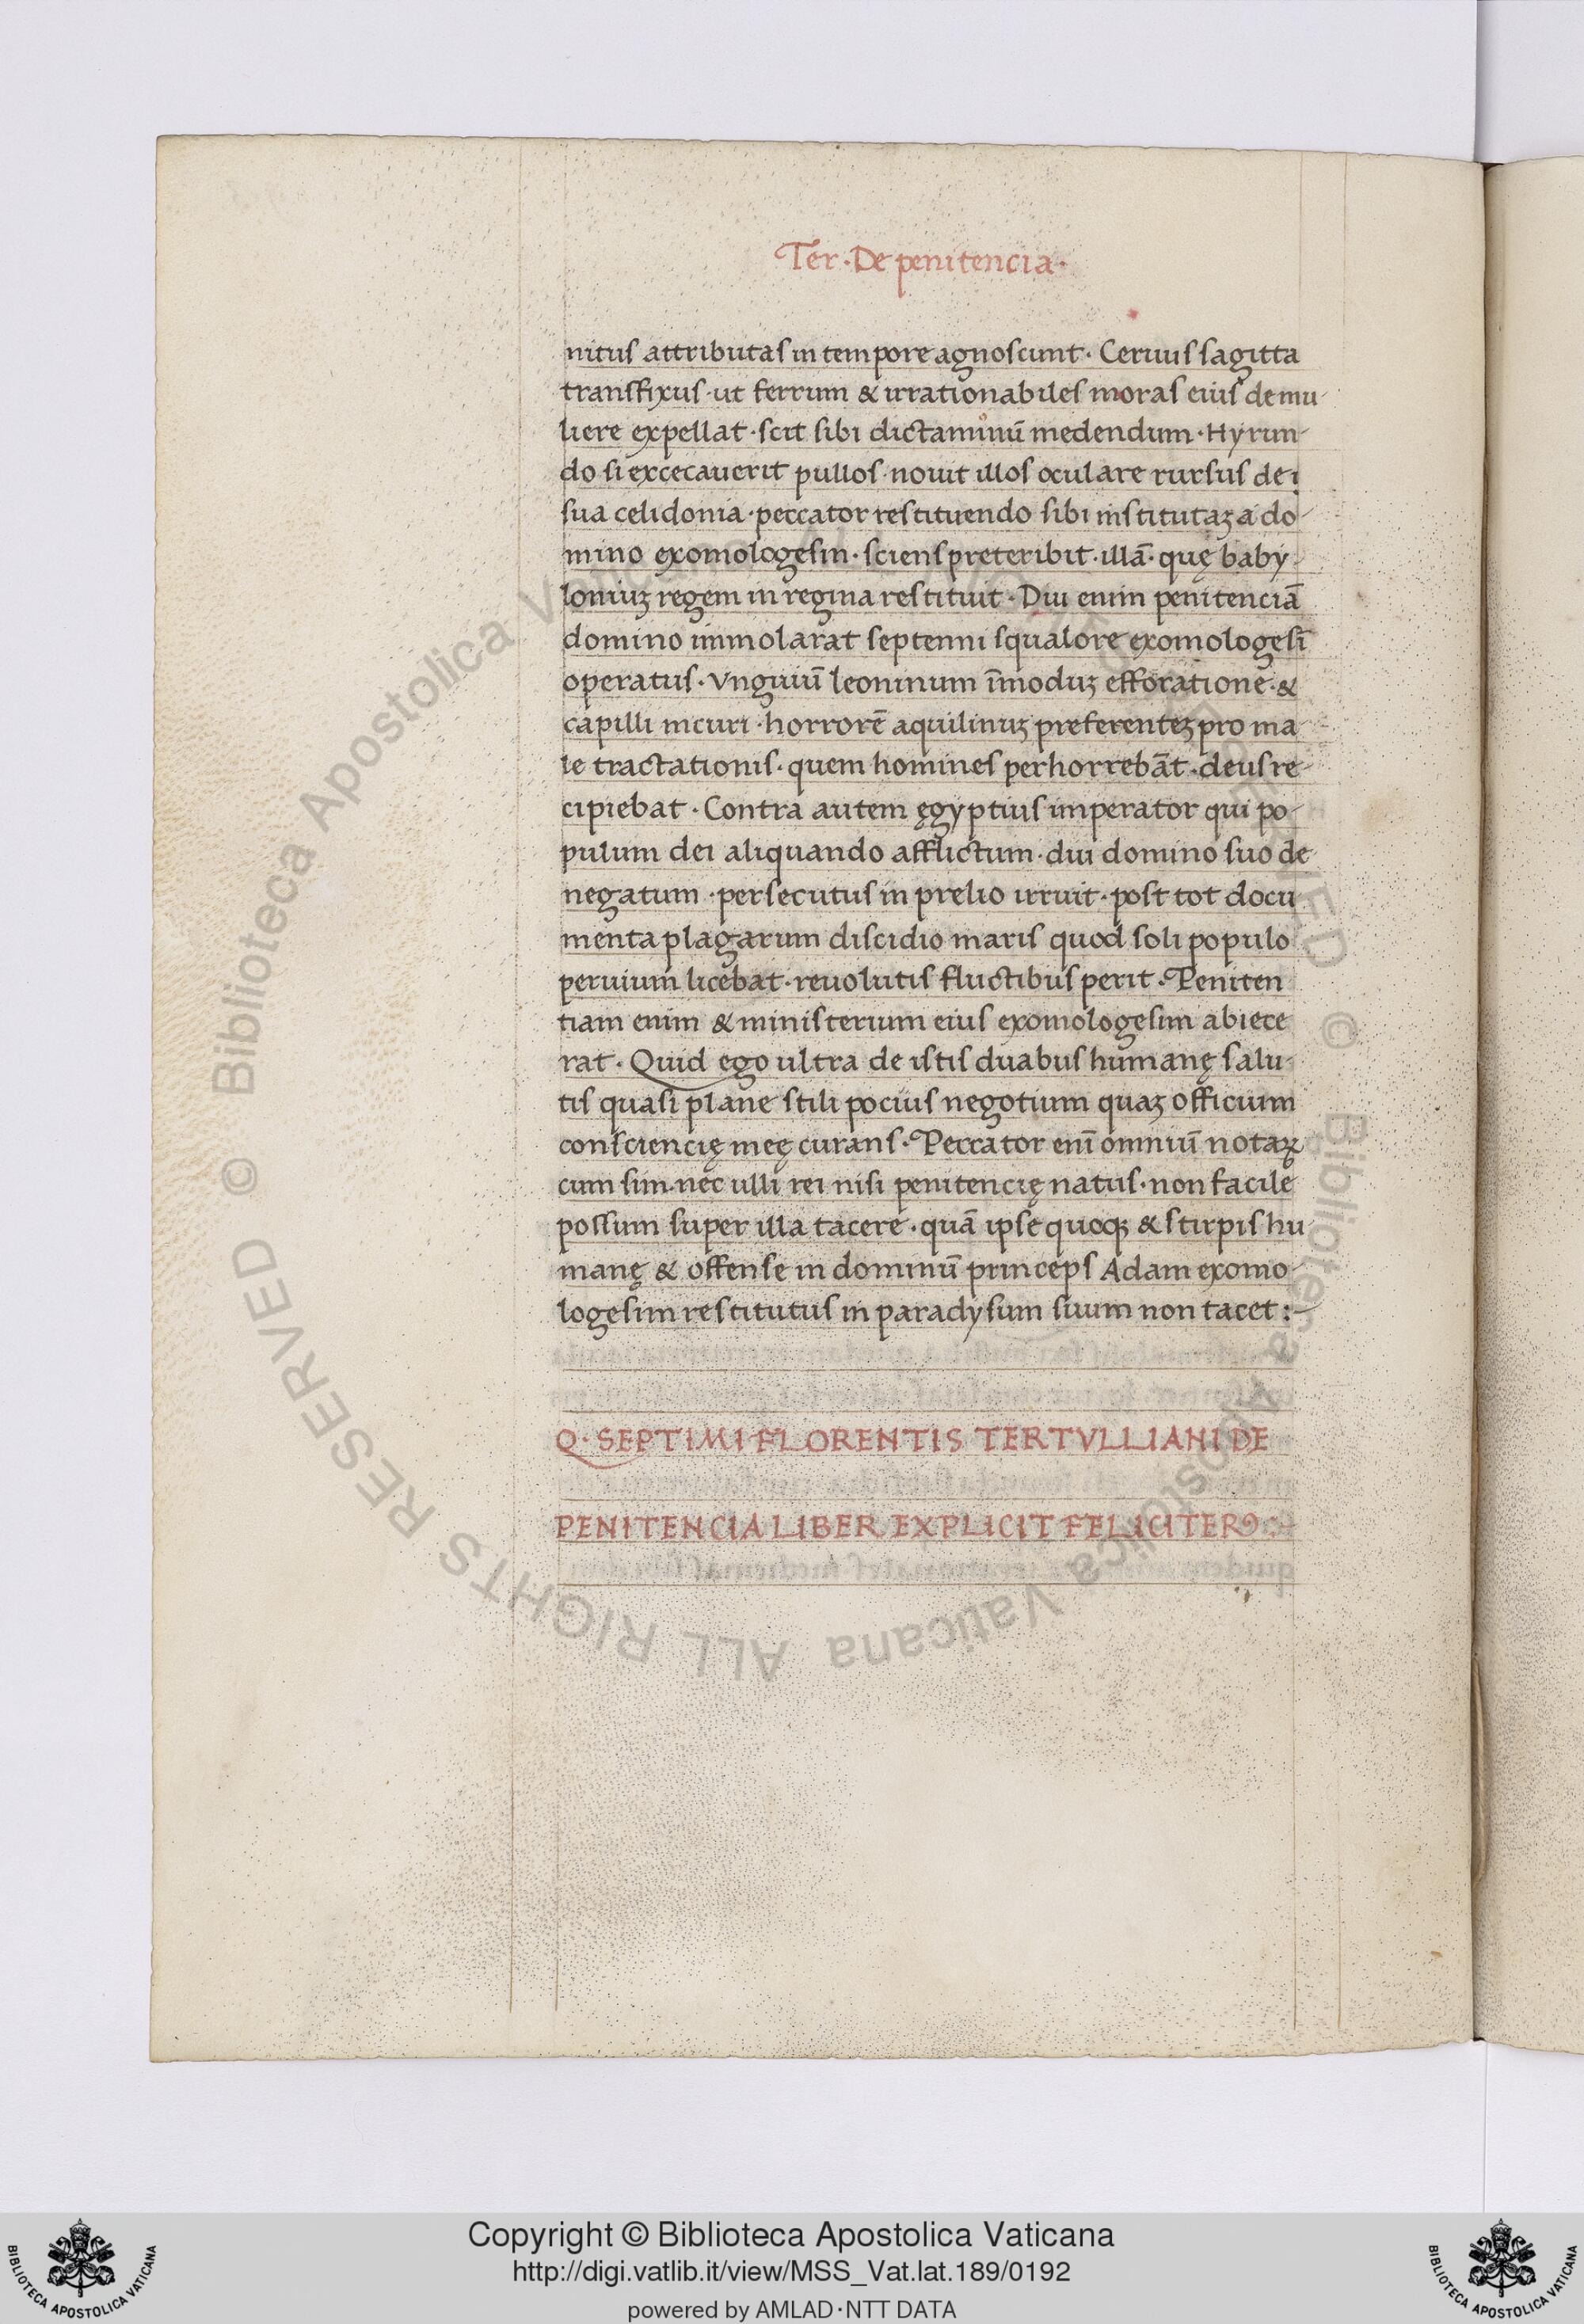 Ter · De penitencia ·
nitus attributas in tempore agnoscunt · Ceruus sagitta
transfixus · ut ferrum & irrationabiles moras eius de mu-
liere expellat · scit sibi dictaminū medendum · Hyrun-
do si excecauerit pullos · nouit illos oculare rursus de i
sua celidonia · peccator restituendo sibi institutaꝫ a do-
mino exomologesin · sciens preteribit · illā · quę baby-
loniuꝫ regem in regina restituit · Diu enim penitenciā
domino immolarat septenni squalore exomologesī
operatus · vnguiū leoninum īmoduꝫ efforatione · &
capilli incuri · horrorē aquilinuꝫ preferenteꝫ pro ma-
le tractationis · quem homines perhorrebāt · deus re-
cipiebat · Contra autem ęgyptius imperator qui po-
pulum dei aliquando afflictum · diu domino suo de-
negatum · persecutus in prelio irruit · post tot docu-
menta plagarum discidio maris quod soli populo
peruium licebat · reuolutis fluctibus perit · Peniten
tiam enim & ministerium eius exomologesim abiece
rat · Quid ego ultra de istis duabus humanę salu-
tis quasi plane stili pocius negotium quaꝫ officium
consciencię meę curans · Peccator enī omniū notaꝝ
cum sim · nec ulli rei nisi penitencię natus · non facile
possum super illa tacere · quā ipse quoqꝫ & stirpis hu-
manę & offense in dominū princeps Adam exomo-
logesim restitutus in paradysum suum non tacet :-
Q · SEPTIMI FLORENTIS TERTVLLIANI DE
PENITENCIA LIBER EXPLICIT FELICITER :-
© Biblioteca Apostolica Vaticana ALL RIGHTS RESERVED © Biblioteca Apostolica Vaticana ALL RIGHTS RESERVED
Copyright © Biblioteca Apostolica Vaticana
http://digi.vatlib.it/view/MSS_Vat.lat.189/0192
powered by AMLAD·NTT DATA
BIBLIOTECA APOSTOLICA VATICANA
BIBLIOTECA APOSTOLICA VATICANA